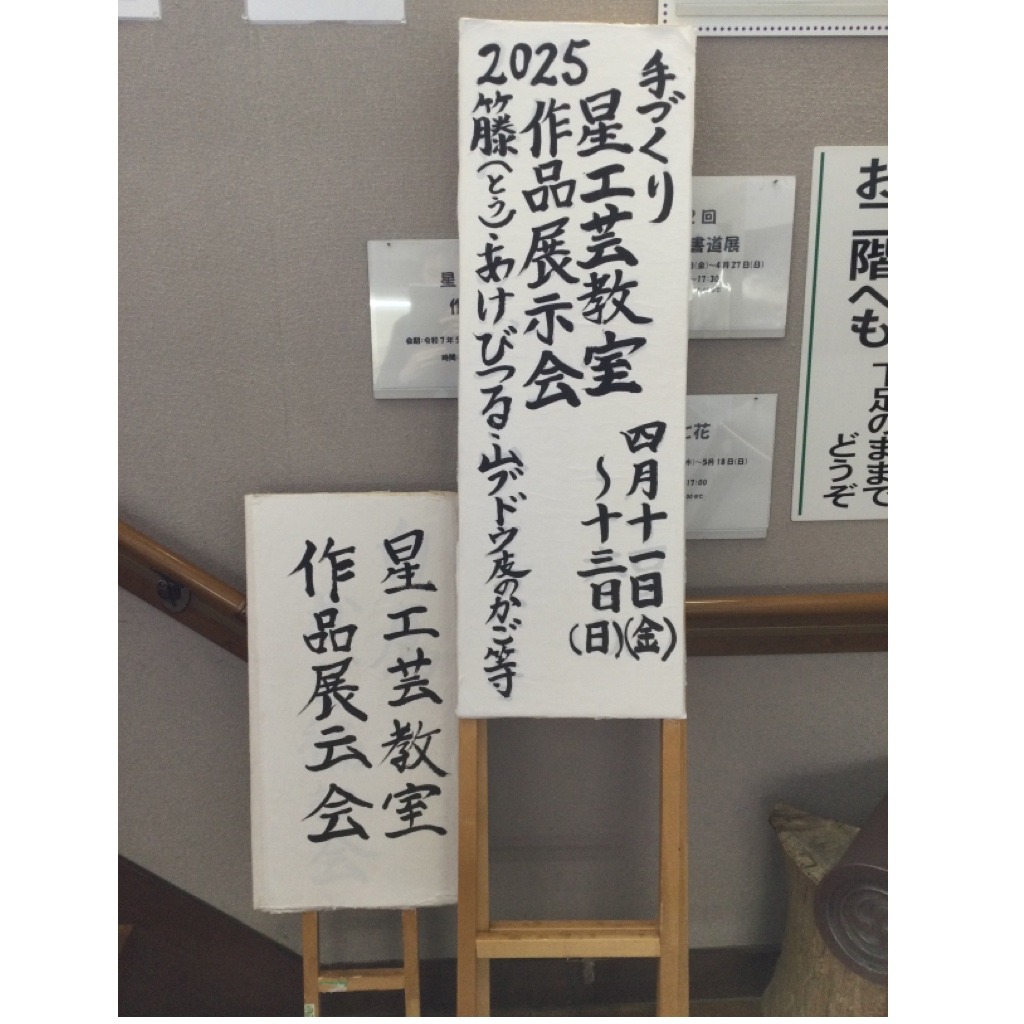 手づくり
星工芸教室
作品展示会
2025
籐(とう)・あけびつる・山ブドウ皮のかご等
四月十一日(金)
〜十三日(日)
星工芸教室
作品展示会
お二階へも
下足のままで
どうぞ
2回
書道展
(金)〜4月27日(日)
〜17:30
星
作
会期:令和7年
時間:
七花
(木)〜5月18日(日)
17:00